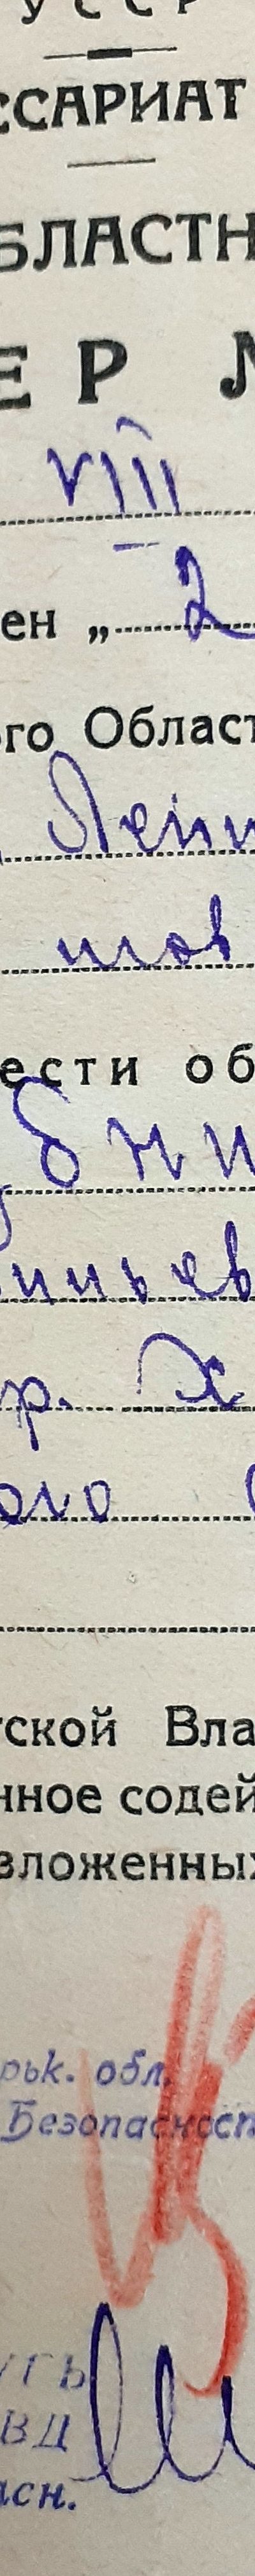 УССР
ССАРИАТ
БЛАСТН
ЕР М
VIII
ен „ 2
ого Област
Ленин
тов
ести об
бни
иньев
р. Х
ого
тской Вла
нное содей
зложенных
рьк. обл.
Безопасност
УГБ
ВД
асн.